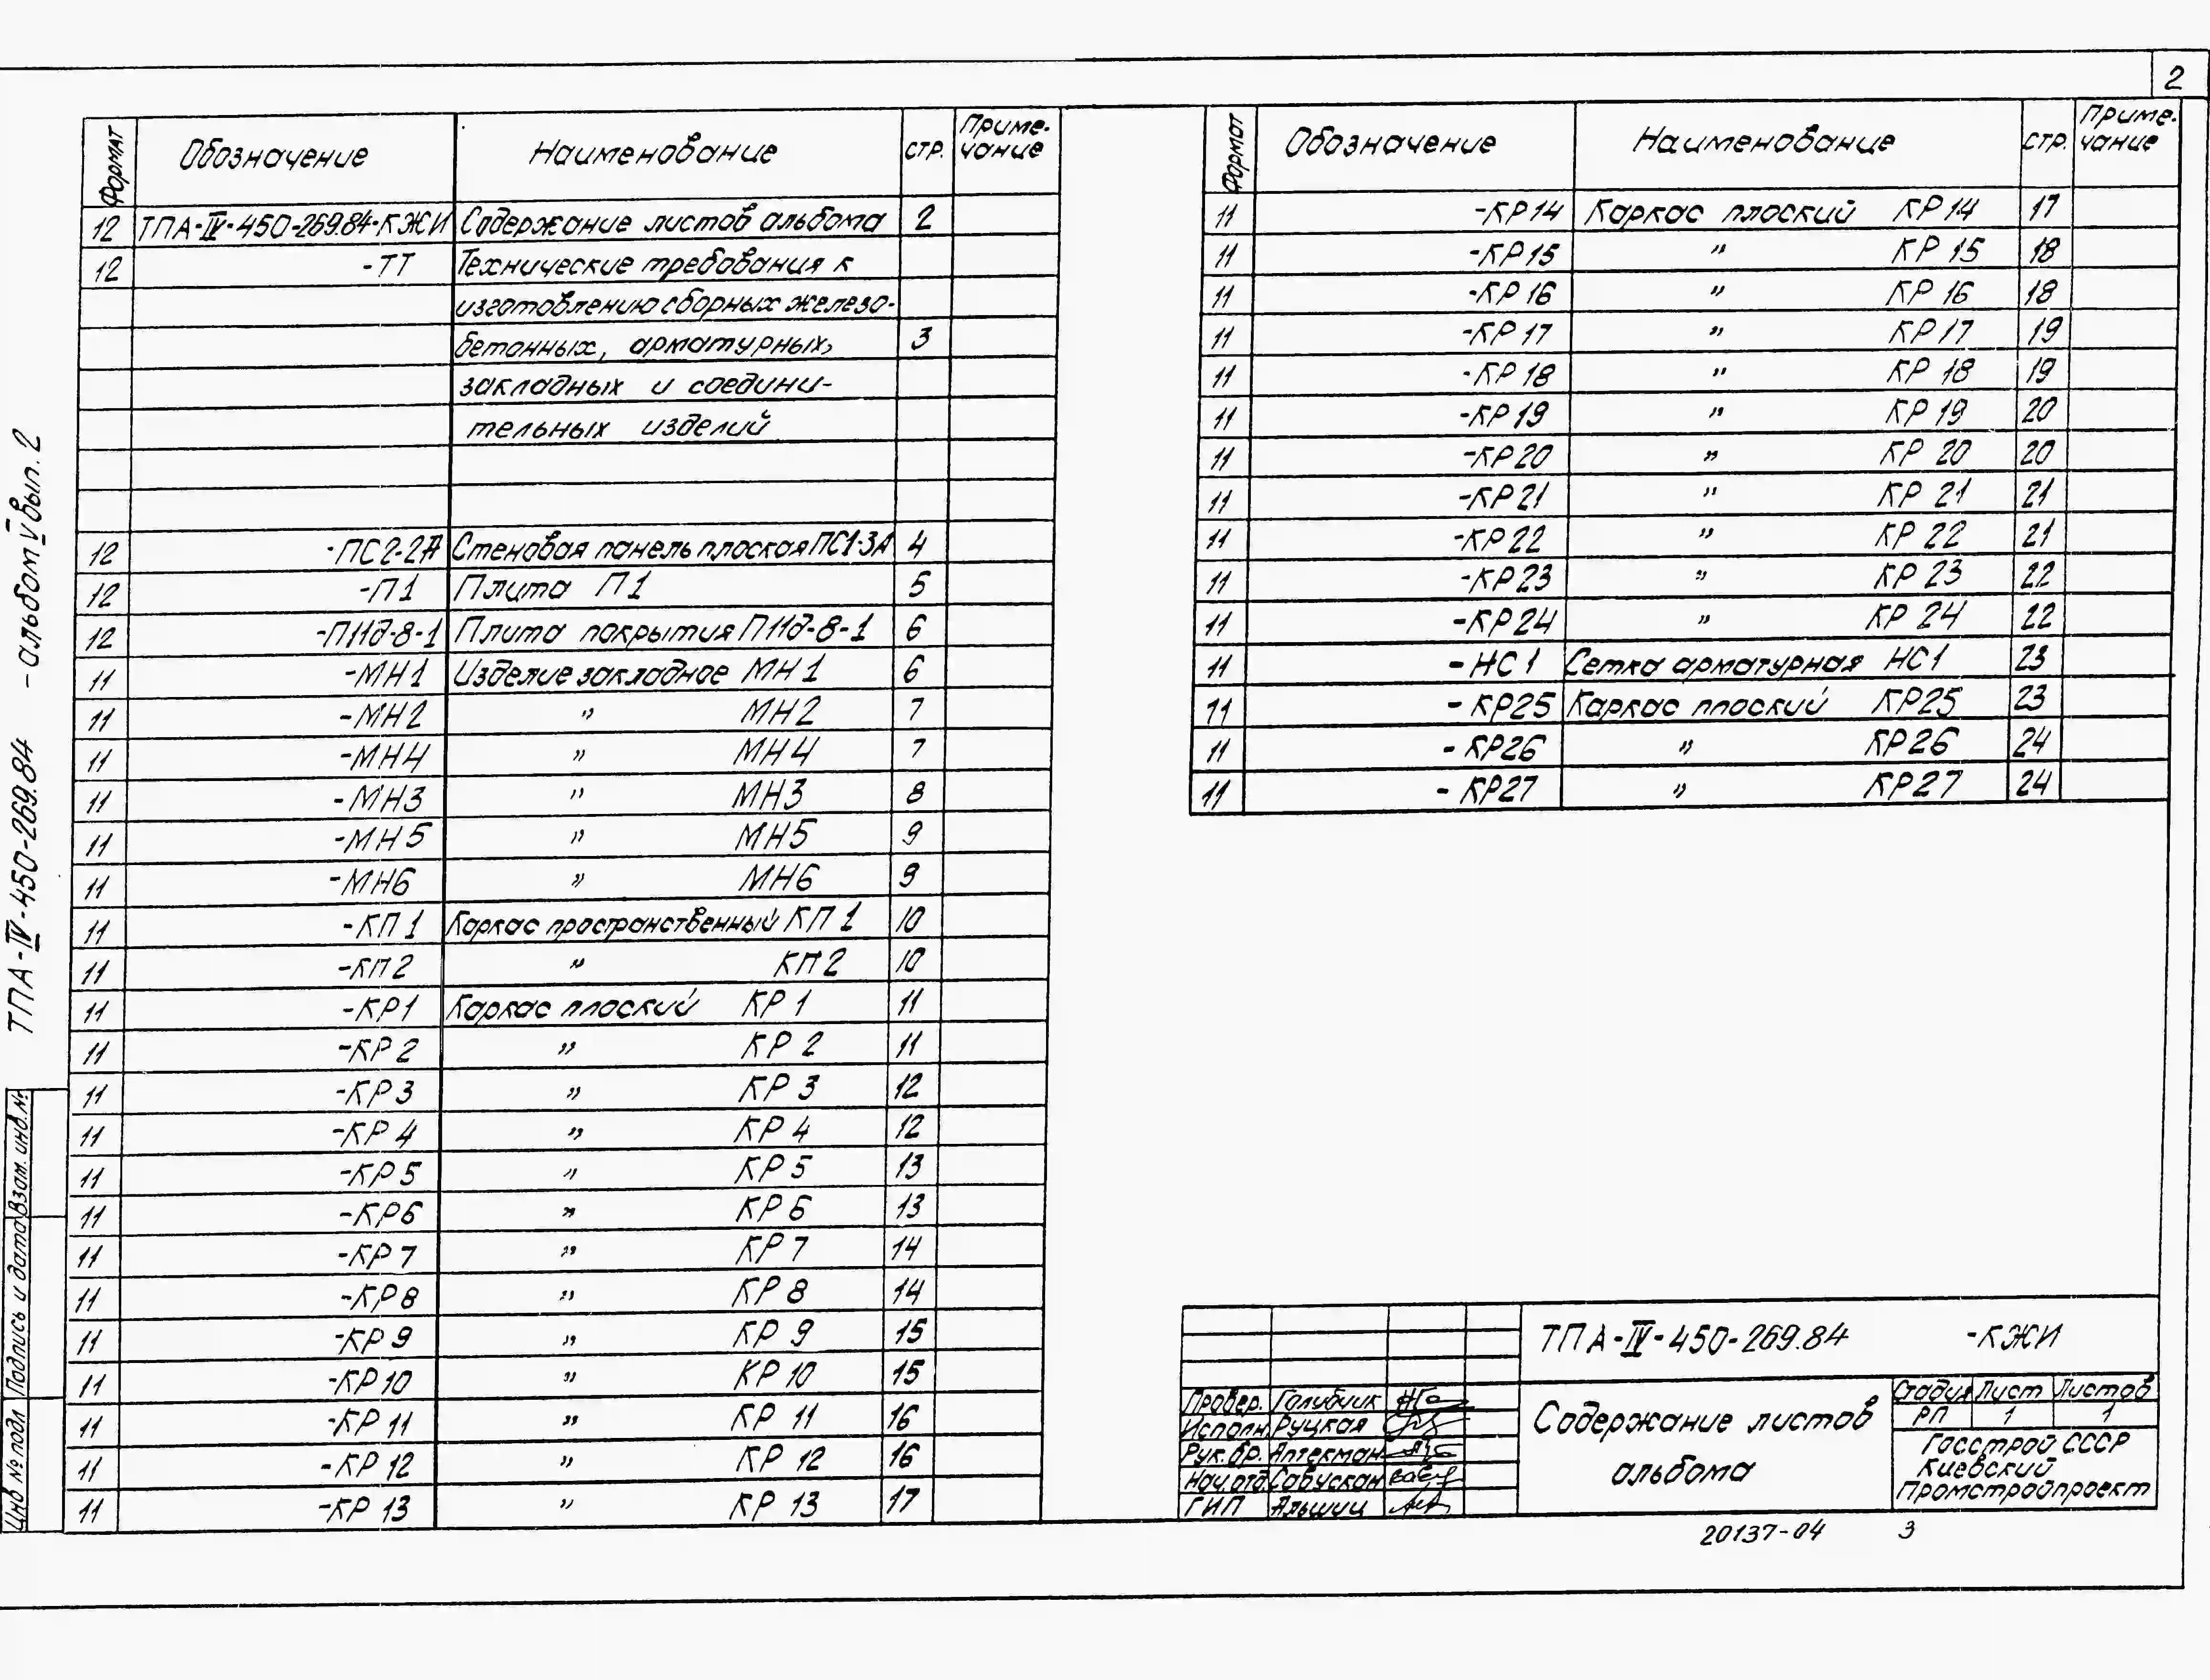 2
Формат Обозначение Наименование стр. Приме-
чание
12 ТПА-IV-450-269.84-КЖИ Содержание листов альбома 2
12 -ТТ Технические требования к
изготовлению сборных железо-
бетонных, арматурных, 3
закладных и соедини-
тельных изделий
12 -ПС2-2А Стеновая панель плоская ПС1-3А 4
12 -П1 Плита П1 5
12 -П11д-8-1 Плита покрытия П11д-8-1 6
11 -МН1 Изделие закладное МН1 6
11 -МН2 " МН2 7
11 -МН4 " МН4 7
11 -МН3 " МН3 8
11 -МН5 " МН5 9
11 -МН6 " МН6 9
11 -КП1 Каркас пространственный КП1 10
11 -КП2 " КП2 10
11 -КР1 Каркас плоский КР1 11
11 -КР2 " КР2 11
11 -КР3 " КР3 12
11 -КР4 " КР4 12
11 -КР5 " КР5 13
11 -КР6 " КР6 13
11 -КР7 " КР7 14
11 -КР8 " КР8 14
11 -КР9 " КР9 15
11 -КР10 " КР10 15
11 -КР11 " КР11 16
11 -КР12 " КР12 16
11 -КР13 " КР13 17
Формат Обозначение Наименование стр. Приме-
чание
11 -КР14 Каркас плоский КР14 17
11 -КР15 " КР15 18
11 -КР16 " КР16 18
11 -КР17 " КР17 19
11 -КР18 " КР18 19
11 -КР19 " КР19 20
11 -КР20 " КР20 20
11 -КР21 " КР21 21
11 -КР22 " КР22 21
11 -КР23 " КР23 22
11 -КР24 " КР24 22
11 -НС1 Сетка арматурная НС1 23
11 -КР25 Каркас плоский КР25 23
11 -КР26 " КР26 24
11 -КР27 " КР27 24
ТПА-IV-450-269.84 -альбом V вып. 2
Взам. инв. №
Подпись и дата
Инв № подл
ТПА-IV-450-269.84 -КЖИ
Провер. Голибчик
Исполн. Руцкая
Рук. бр. Аптекман
Нач. отд. Сабускан
ГИП Альшиц
Содержание листов
альбома
Стадия Лист Листов
РП 1 1
Госстрой СССР
Киевский
Промстройпроект
20137-04 3